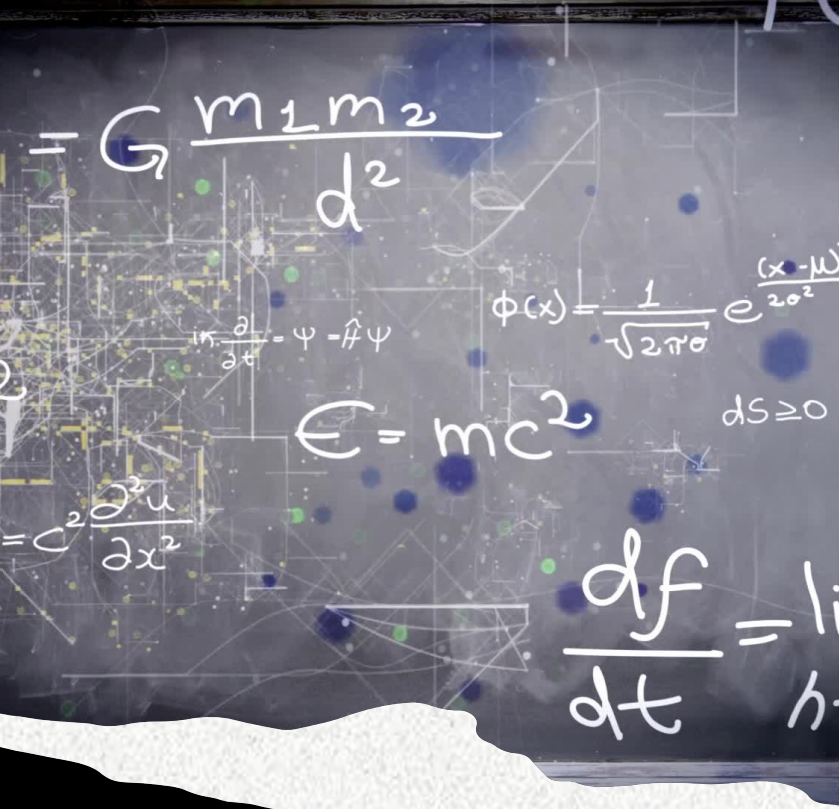 = G m1m2 / d²
φ(x) = 1 / √2πσ e (x-μ) / 2σ²
∂ / ∂t = Ψ = ĤΨ
E = mc²
dS ≥ 0
= c² ∂²u / ∂x²
df / dt = li
h